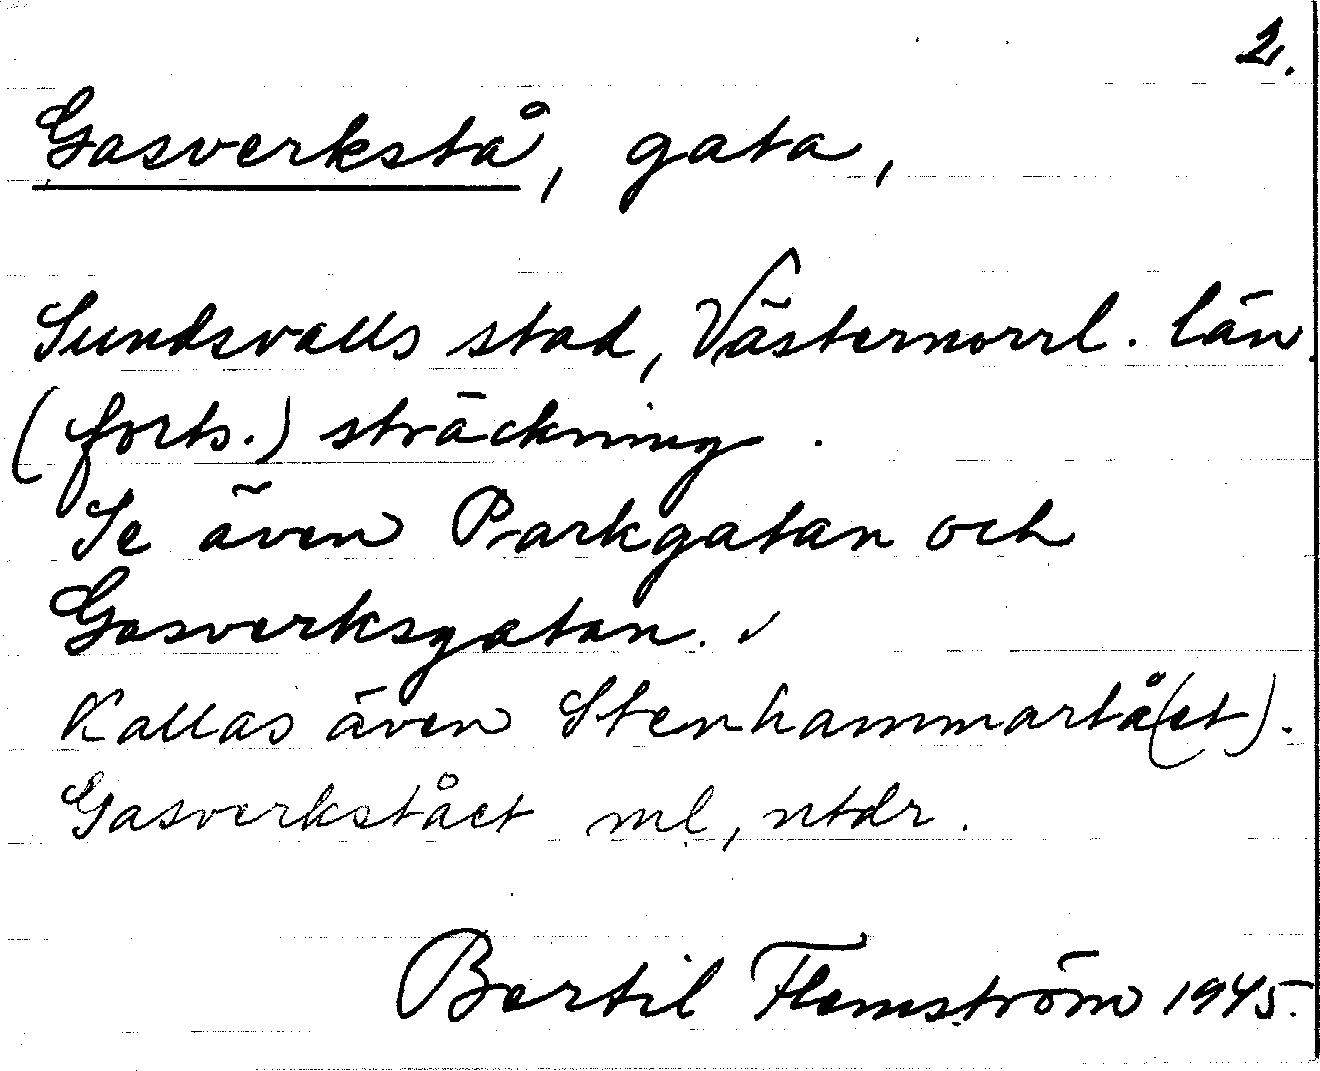 2.
Gasverkstå, gata,
Sundsvalls stad, Västernorrl. län.
(forts.) sträckning.
Se även Parkgatan och
Gasverksgatan. ✓
Kallas även Stenhammartå(et).
Gasverkstået ml, ntdr.
Bertil Flemström 1945.